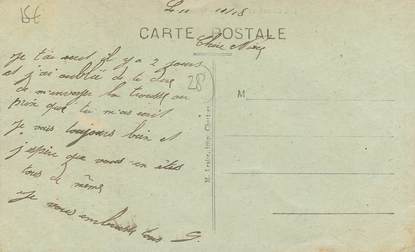 15€
Le 11 10/18
CARTE POSTALE
Chère Mère
Je t'ai écrit il y a 2 jours
et j'ai oublié de te dire
de m'envoyer la trousse au
prix que tu m'as écrit
28
M
Je vais toujours bien et
j'espère que vous en êtes
tous de même
Je vous embrasse tous G.